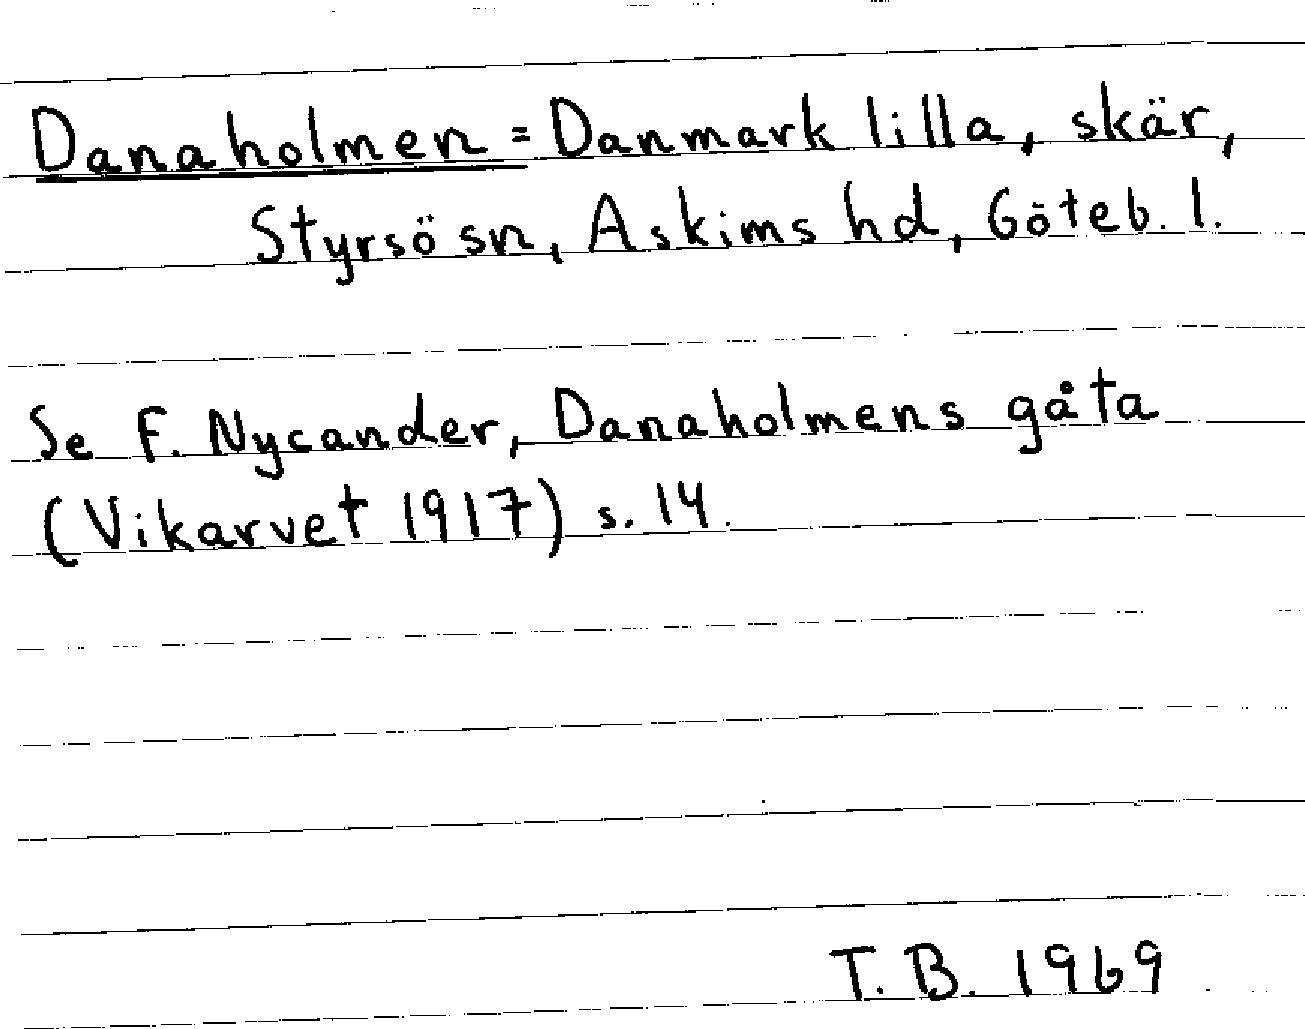 Danaholmen = Danmark lilla, skär,
Styrsö sn, Askims hd, Göteb. l.
Se F. Nycander, Danaholmens gåta
(Vikarvet 1917) s. 14.
T. B. 1969